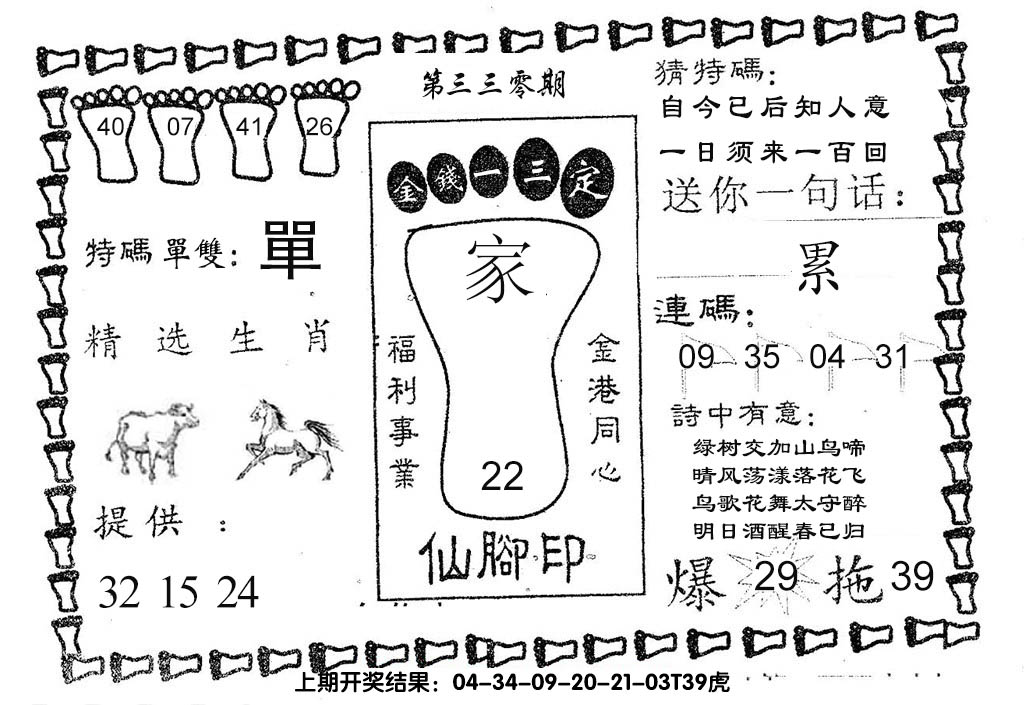 第三三零期
40 07 41 26
特碼單雙：單
精选生肖
提供：
32 15 24
金錢一三定
家
福利事業
金港同心
22
仙腳印
猜特碼：
自今已后知人意
一日须来一百回
送你一句话：
累
連碼：
09 35 04 31
詩中有意：
绿树交加山鸟啼
晴风荡漾落花飞
鸟歌花舞太守醉
明日酒醒春已归
爆 29 拖 39
上期开奖结果：04-34-09-20-21-03T39虎